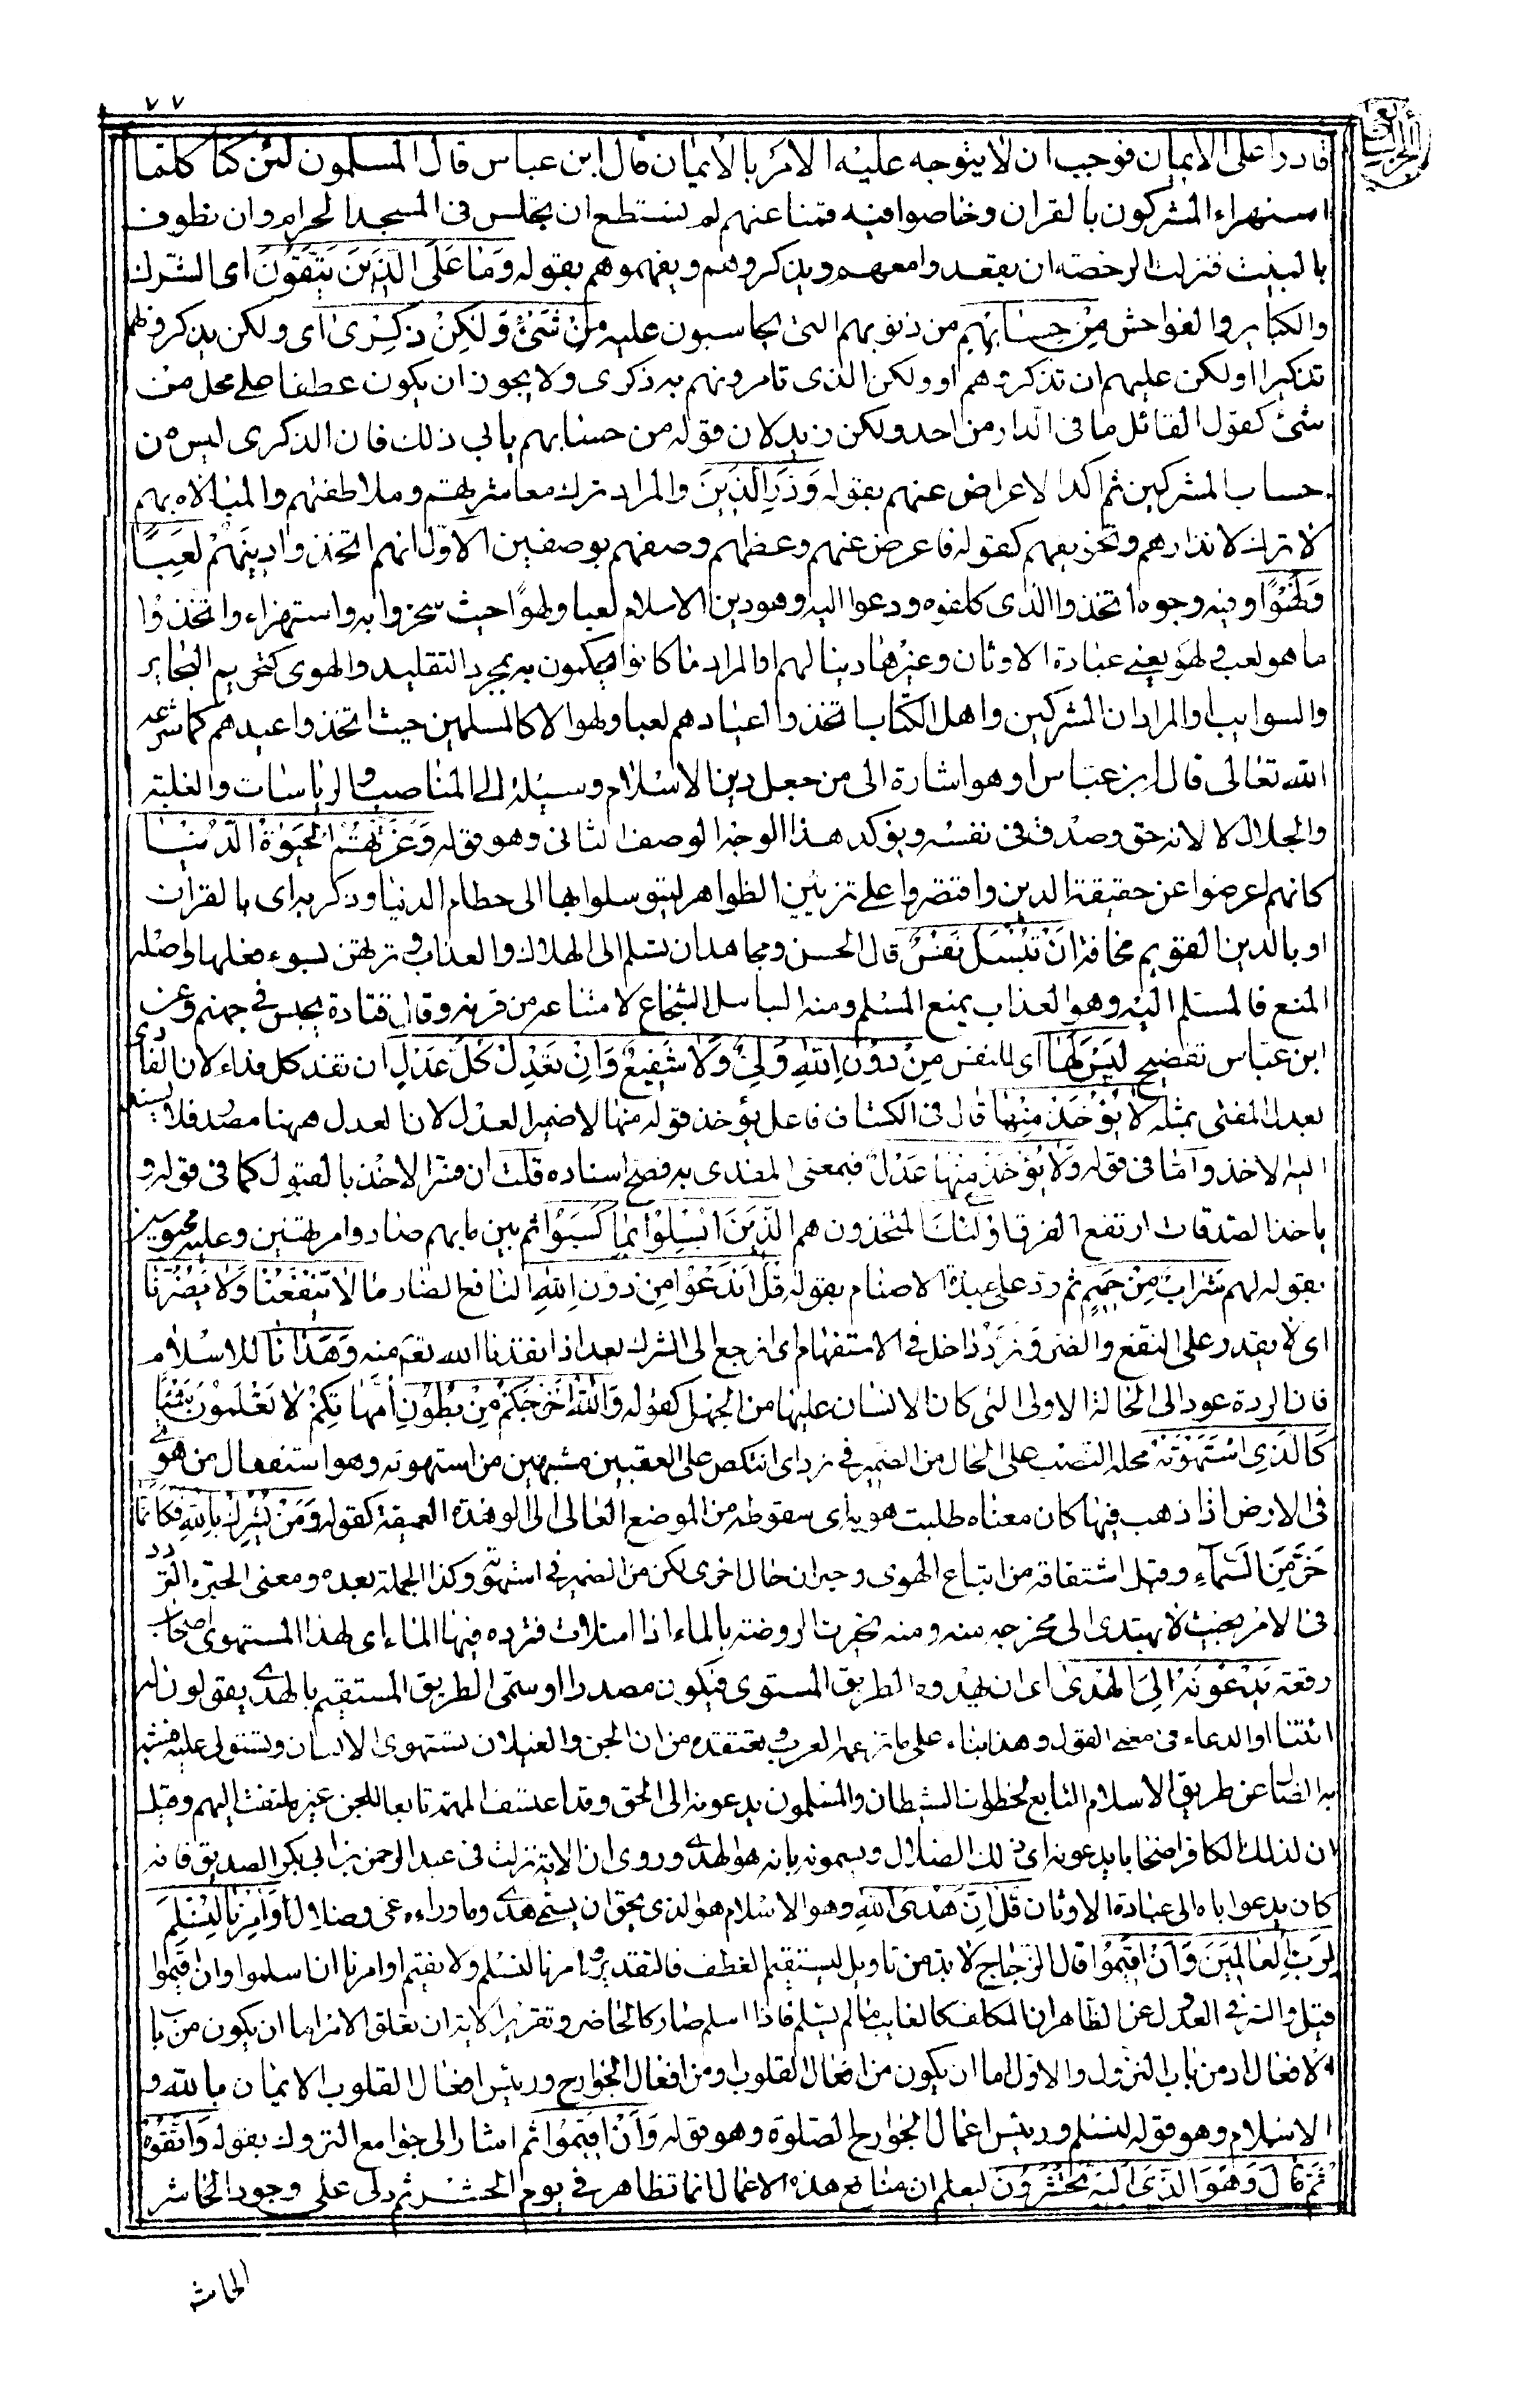 ٧٧
الجزء السابع
قادرا على الايمان فوجب ان لا يتوجه عليه الامر بالايمان قال ابن عباس قال المسلمون لئن كنا كلما
استهزاء المشركون بالقران وخاضوا فيه قمنا عنهم لم نستطع ان نجلس فى المسجد الحرام وان نطوف
بالبيت فنزلت الرخصة ان يقعدوا معهم ويذكروهم ويفهموهم بقوله وَمَا عَلَى الَّذِينَ يَتَّقُونَ اى الشرك
والكباير والفواحش مِنْ حِسَابِهِمْ من ذنوبهم التى يحاسبون عليه مِنْ شَىْءٍ وَلَكِنْ ذِكْرَىٰ اى ولكن يذكرونهم
تذكيرا او لكن عليهم ان تذكروهم او ولكن الذى تامرونهم به ذكرى ولا يجوز ان يكون عطفا على محل من
شئ كقول القائل ما فى الدار من احد ولكن زيد لان قوله من حسابهم يابى ذلك فان الذكرى ليس من
حساب المشركين ثم اكد الاعراض عنهم بقوله وَذَرِ الَّذِينَ والمراد ترك معاشرتهم وملاطفتهم والمبالاه بهم
لا ترك لانذارهم وتخويفهم كقوله فاعرض عنهم وعظهم وصفهم بوصفين الاول انهم اتَّخَذُوا دِينَهُمْ لَعِبًا
وَلَهْوًا وفيه وجوه اتخذوا الذى كلفوه ودعوا اليه وهو دين الاسلام لعبا ولهوًا حيث سخروا به واستهزاء واتخذوا
ما هو لعب ولهو يعنى عبادة الاوثان وغيرها دينا لهم او المراد ما كانوا يحكمون به بمجرد التقليد والهوى كتحريم البحاير
والسوايب او المراد ان المشركين واهل الكتاب اتخذوا اعيادهم لعبا ولهوا لا كالمسلمين حيث اتخذوا عيدهم كما شرعه
الله تعالى قال ابن عباس او هو اشارة الى من جعل دين الاسلام وسيلة الى المناصب والرياسات والغلبة
والجلال لا لانه حق وصدق فى نفسه ويؤكد هذا الوجه الوصف الثانى وهو قوله وَغَرَّتْهُمُ الْحَيَوٰةُ الدُّنْيَا
كانهم اعرضوا عن حقيقة الدين واقتصروا على تزيين الظواهر ليتوسلوا بها الى حطام الدنيا وذكر به اى بالقران
او بالدين القويم مخافة اَنْ تُبْسَلَ نَفْسٌ قال الحسن ومجاهد ان تسلم الى الهلاك والعذاب وترتهن بسوء فعلها واصله
المنع فالمسلم اليه وهو العذاب يمنع المسلم ومنه الباسل الشجاع لامتناعه من قرنه وقال قتادة يحبس فى جهنم وعن
ابن عباس تفضح لَيْسَ لَهَا اى للنفس مِنْ دُونِ اللهِ وَلِىٌّ وَلَا شَفِيعٌ وَاِنْ تَعْدِلْ كُلَّ عَدْلٍ ان تفد كل فداء لان الفادى
يعدل المفدى بمثله لَا يُؤْخَذْ مِنْهَا قال فى الكشاف فاعل يؤخذ قوله منها لا ضمير العدل لان العدل ههنا مصدر فلا يسند
اليه الاخذ واما فى قوله وَلَا يُؤْخَذُ مِنْهَا عَدْلٌ فبمعنى المفدى به فصح اسناده قلت ان فسر الاخذ بالقبول كما فى قوله و
ياخذ الصدقات ارتفع الفرق اُولٰئِكَ المتخذون هم الَّذِينَ اُبْسِلُوا بِمَا كَسَبُوا ثم بين ما بهم صاروا مرتهنين وعليه محبوسين
بقوله لهم شَرَابٌ مِنْ حَمِيمٍ ثم رد على عبدة الاصنام بقوله قُلْ اَنَدْعُوا مِن دُونِ اللهِ النافع الضار مَا لَا يَنْفَعُنَا وَلَا يَضُرُّنَا
اى لا يقدر على النفع والضر وَنُرَدُّ داخل فى الاستفهام اى نرجع الى الشرك بعد اذ انقذنا الله تعم منه وَهَدَانَا للاسلام
فان الردة عود الى الحالة الاولى التى كان الانسان عليها من الجهل كقوله وَاللهُ اَخْرَجَكُمْ مِنْ بُطُونِ اُمَّهَاتِكُمْ لَا تَعْلَمُونَ شَيْئًا
كَالَّذِى اسْتَهْوَتْهُ محله النصب على الحال من الضمير فى نرد اى اننكص على العقبين مشبهين من استهوته وهو استفعال من هوى
فى الارض اذا ذهب فيها كان معناه طلبت هويه اى سقوطه من الموضع العالى الى الوهدة العميقة كقوله وَمَنْ يُشْرِكْ بِاللهِ فَكَاَنَّمَا
خَرَّ مِنَ السَّمَآءِ وقيل اشتقاقه من اتباع الهوى وحيران حال اخرى لكن من الضمير فى استهوته وكذا الجملة بعده ومعنى الحيرة التردد
فى الامر بحيث لا يهتدى الى مخرجه منه ومنه تحيرت الروضة بالماء اذا امتلات فتردد فيها الماء اى لهذا المستهوى اصحاب
رفقة يَدْعُونَهُ اِلَى الْهُدَى اى ان يهدوه الطريق المستوى فيكون مصدرا او سمى الطريق المستقيم بالهدى يقولون له
ائتنا او الدعاء فى معنى القول وهذا بناء على ما تزعمه العرب وتعتقده من ان الجن والغيلان تستهوى الانسان وتستولى عليه فشبه
به الضال عن طريق الاسلام التابع لخطوات الشيطان والمسلمون يدعونه الى الحق وقد اعتسف المهمه تابعا للجن غير ملتفت اليهم وقيل
ان لذلك الكافر اصحابا يدعونه الى ذلك الضلال ويسمونه بانه هو الهدى وروى ان الاية نزلت فى عبد الرحمن بن ابى بكر الصديق فانه
كان يدعو اباه الى عبادة الاوثان قُلْ اِنَّ هُدَى اللهِ وهو الاسلام هو الذى يحق ان يسمى هدى وما وراءه غى وضلال وَاُمِرْنَا لِنُسْلِمَ
لِرَبِّ الْعَالَمِينَ وَاَنْ اَقِيمُوا قال الزجاج لا بد من تاويل ليستقيم العطف فالتقدير وامرنا لنسلم ولا نقيم او امرنا ان اسلموا وان اقيموا
قيل والسر فى العدول عن الظاهر ان المكلف كالغايب ما لم يسلم فاذا اسلم صار كالحاضر وتقرير الاية ان تعلق الامر اما ان يكون من باب
الافعال او من باب التروك والاول اما ان يكون من افعال القلوب او من افعال الجوارح ورئيس افعال القلوب الايمان بالله و
الاسلام وهو قوله لنسلم ورئيس اعمال الجوارح الصلوة وهو قوله وَاَنْ اَقِيمُوا ثم اشار الى جوامع التروك بقوله وَاتَّقُوهُ
ثم قال وَهُوَ الَّذِى اِلَيْهِ تُحْشَرُونَ ليعلم ان منافع هذه الاعمال انما تظاهر فى يوم الحشر ثم دل على وجود الحاشر
الحاشر